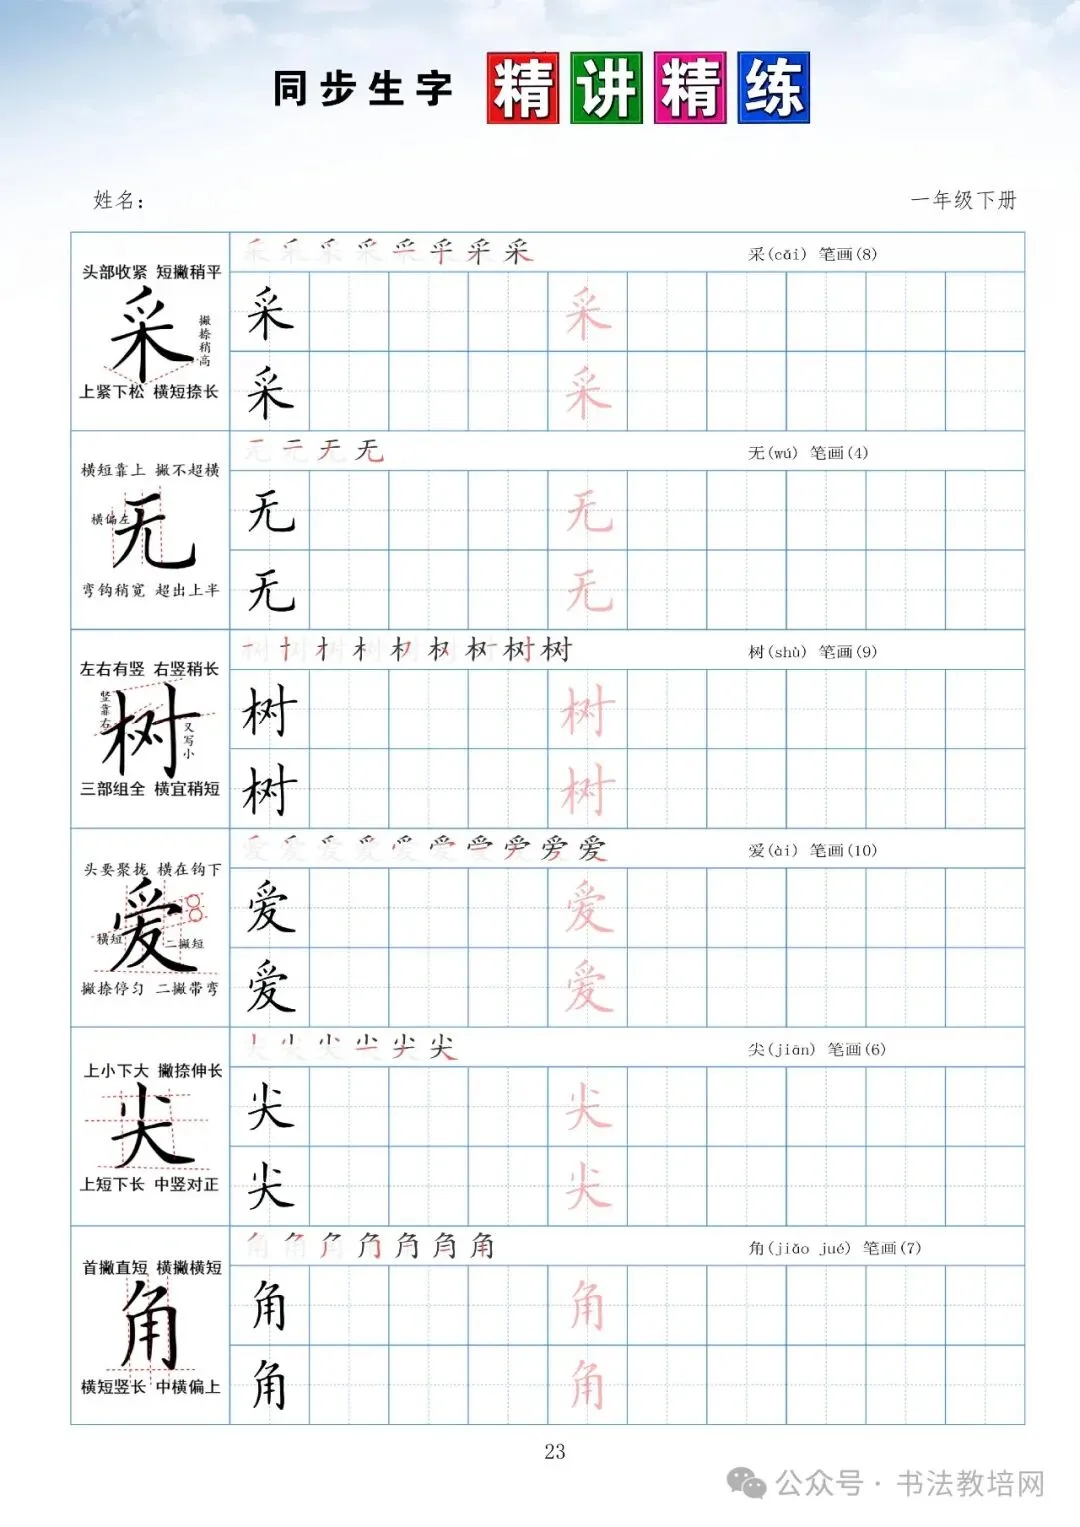 同步生字 精讲精练
姓名：
一年级下册
头部收紧 短撇稍平
采
撇捺稍高
上紧下松 横短捺长
采 采 采 采 采 采 采 采
采(cǎi) 笔画(8)
采 采
采 采
横短靠上 撇不超横
横偏左
无
弯钩稍宽 超出上半
无 无 无 无
无(wú) 笔画(4)
无 无
无 无
左右有竖 右竖稍长
竖靠右
树
又写小
三部组全 横宜稍短
树 树 树 树 树 树 树 树 树
树(shù) 笔画(9)
树 树
树 树
头要聚拢 横在钩下
爱
横短
二撇短
撇捺停匀 二撇带弯
爱 爱 爱 爱 爱 爱 爱 爱 爱 爱
爱(ài) 笔画(10)
爱 爱
爱 爱
上小下大 撇捺伸长
尖
上短下长 中竖对正
尖 尖 尖 尖 尖 尖
尖(jiān) 笔画(6)
尖 尖
尖 尖
首撇直短 横撇横短
角
横短竖长 中横偏上
角 角 角 角 角 角 角
角(jiǎo jué) 笔画(7)
角 角
角 角
23
公众号·书法教培网